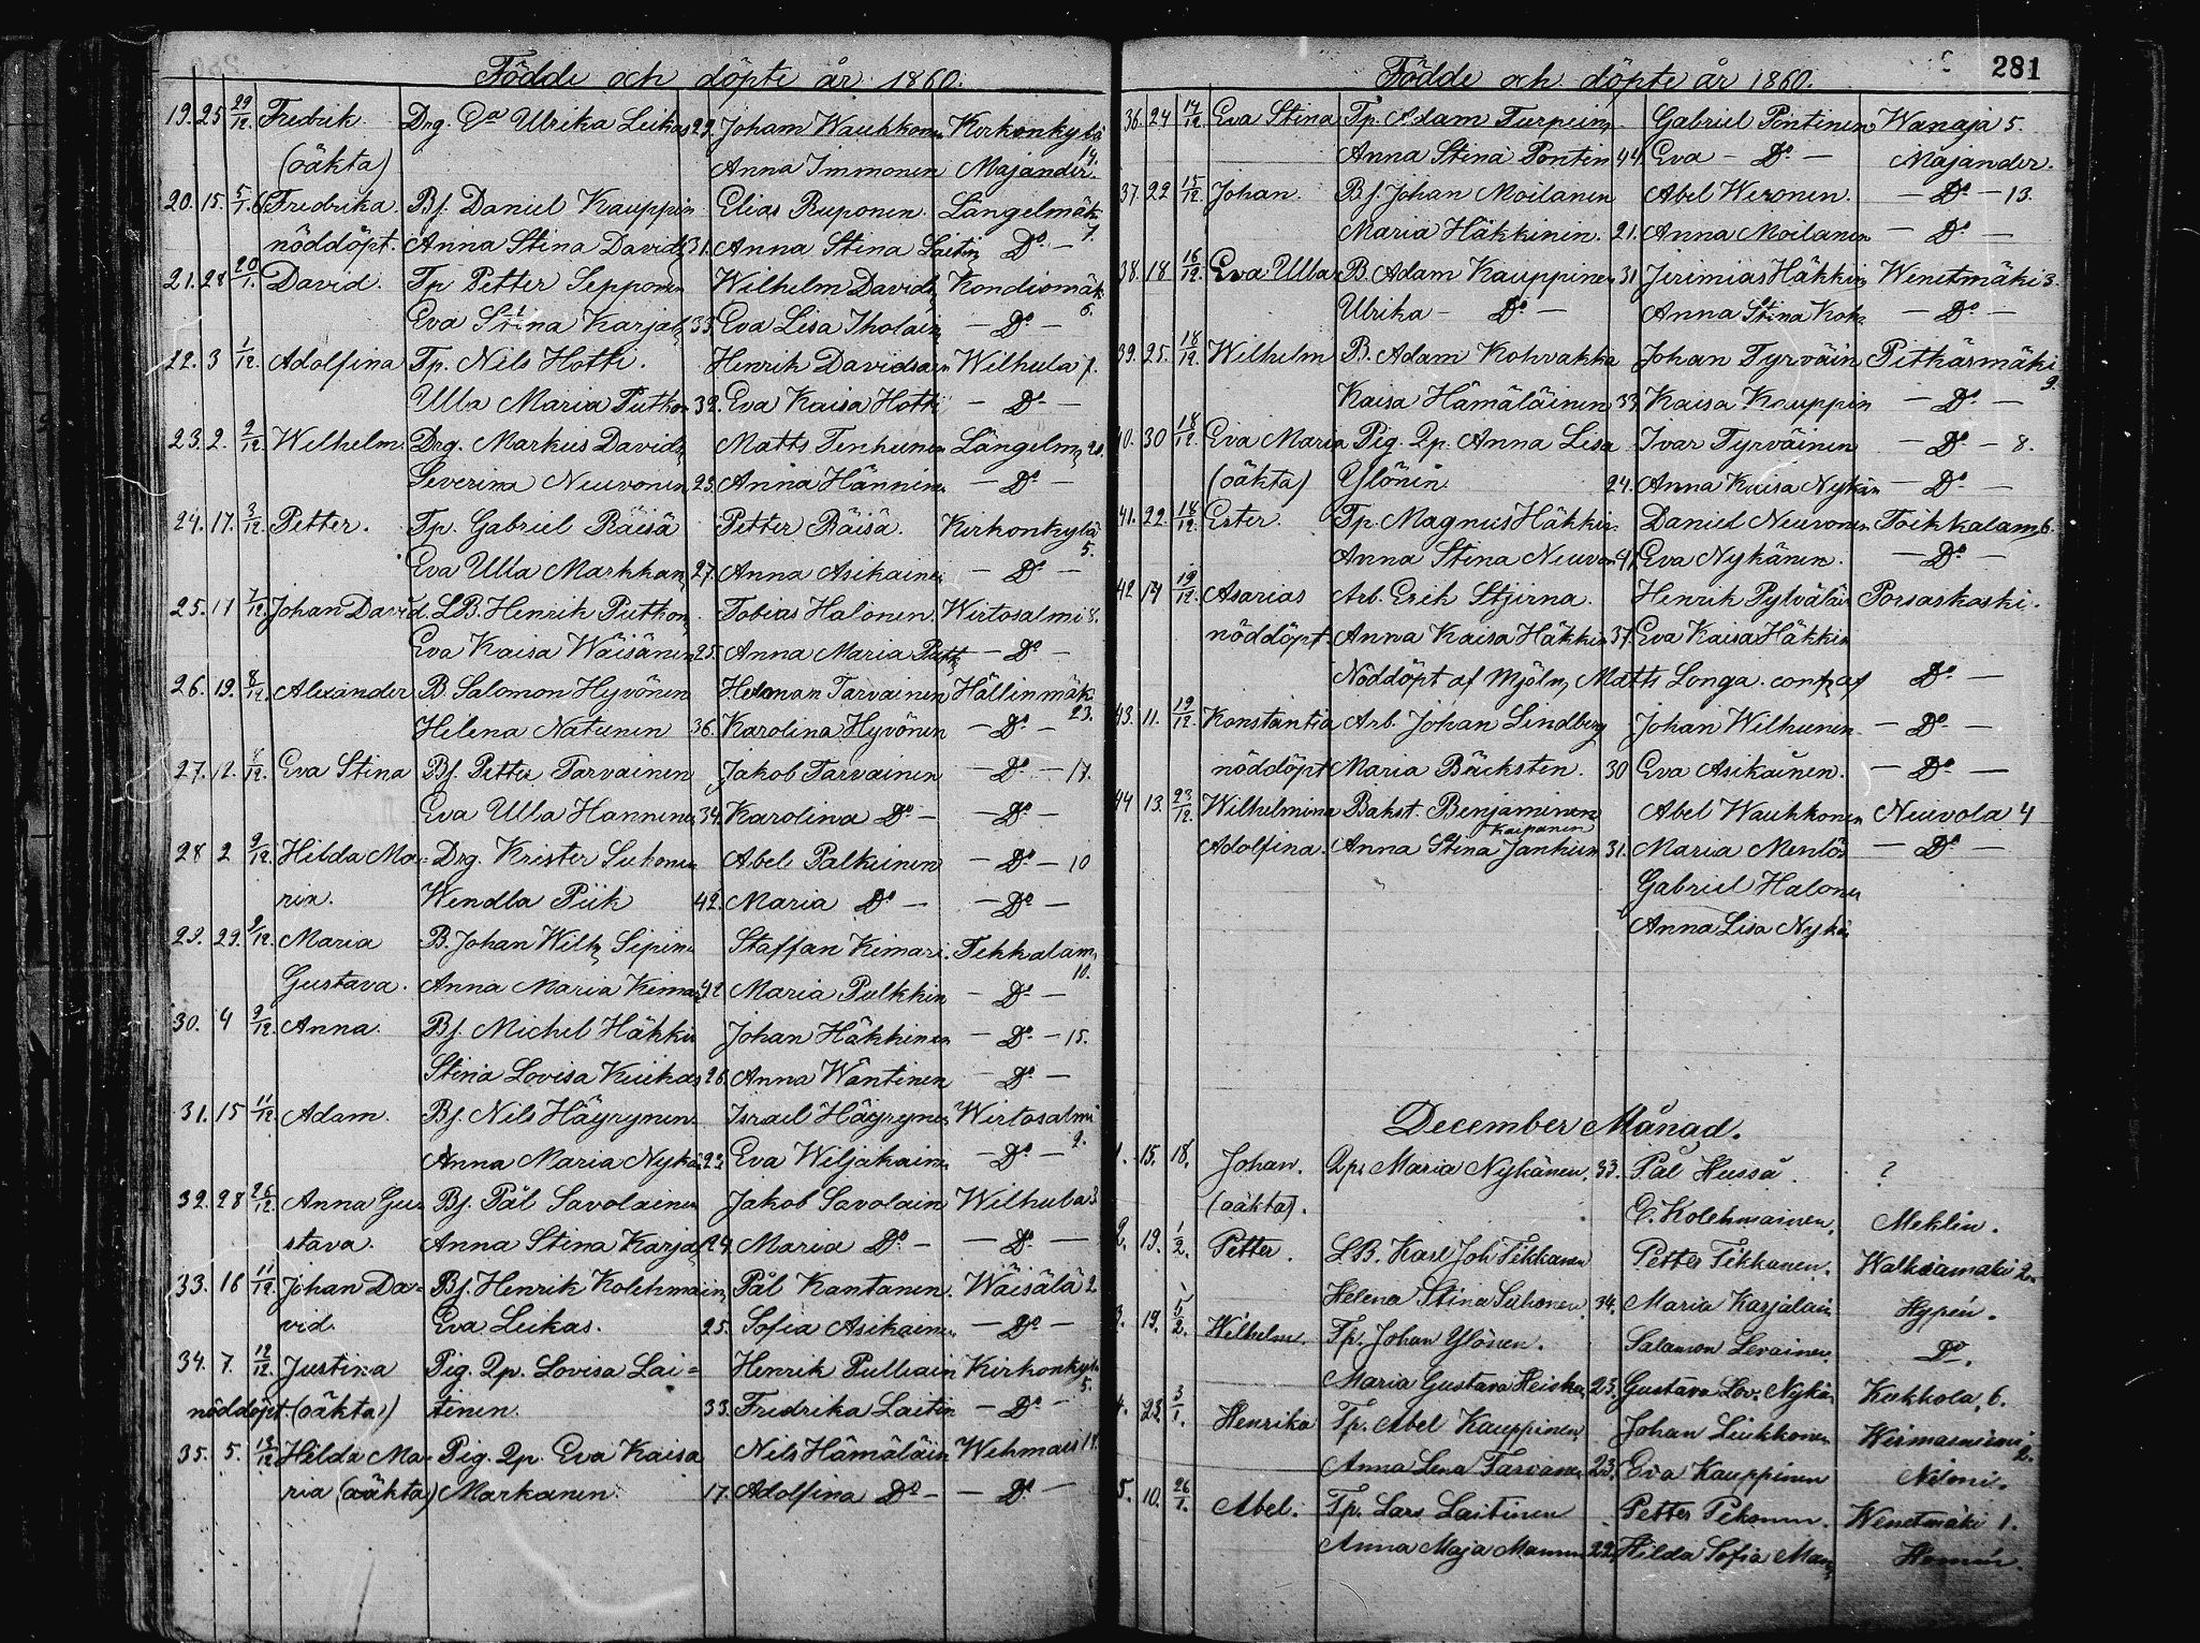 Födde och döpte år 1860.
19. 25 29/12. Fredrik. Drg. Da Ulrika Leikas 29. Johan Wauhkonen Kirkonkylä
(oäkta) Anna Immonen Majander. 14.
20. 15. 5/1. Fredrika. Bf. Daniel Kauppin Elias Ruponen. Längelmäk
nöddöpt. Anna Stina Davids 31. Anna Stina Laitin Do. - 7.
21. 28 20/1. David. Tp Petter Sepponen Wilhelm Davids Kondiomäk
Eva Stina Karjal 33. Eva Lisa Iholain - Do - 6.
22. 3 1/12. Adolfina Tp. Nils Hotti. Henrik Davidsain Wilhula 7.
Ulla Maria Putkon 32. Eva Kaisa Hotti - Do -
23. 2. 2/12. Wilhelm. Drg. Markus Davids Matts Tenhunen Längelm 20.
Severina Neuvonen 23. Anna Hännine. - Do -
24. 17. 3/12. Petter. Tp. Gabriel Räisä Petter Räisä. Kirkonkylä
Eva Ulla Markkan 27. Anna Asikainen - Do - 5.
25. 17 7/12. Johan David. LB. Henrik Putkon Tobias Halonen. Wirtosalmi 8.
Eva Kaisa Wäisänen 25. Anna Maria Putk - Do -
26. 19. 8/12. Alexander B. Salomon Hyvönen Herman Tarvainen Hällinmäki
Helena Natunen 36. Karolina Hyvönen - Do - 23.
27. 12. 8/12. Eva Stina Bf. Petter Tarvainen Jakob Tarvainen - Do - 17.
Eva Ulla Hannine 34. Karolina Do - - Do -
28 2 9/12. Hilda Ma- Drg. Krister Suhonen Abel Palkinen - Do - 10
ria. Wendla Piik 42. Maria Do - - Do -
29. 29. 9/12. Maria B. Johan Wilh Sipine Staffan Kimari. Tekkalam
Gustava. Anna Maria Kimar 42 Maria Pulkkin - Do - 10.
30. 4 9/12. Anna. Bf. Michel Häkkin Johan Häkkinen - Do - 15.
Stina Lovisa Kiikas 26. Anna Wäntinen - Do -
31. 15 11/12 Adam. Bf. Nils Häyrynen. Israel Häyrynen Wirtosalmi
Anna Maria Nykä 23. Eva Wiljakaine - Do - 2.
32. 28 26/12. Anna Gus Bf. Pål Savolainen Jakob Savolain Wilhula 3.
stava. Anna Stina Karjal 24. Maria Do - - Do -
33. 16 11/12. Johan Da= Bf. Henrik Kolehmain Pål Kantanen. Wäisälä 2
vid. Eva Leikas. 25. Sofia Asikainen - Do -
34. 7. 12/12. Justina Pig. Qp. Lovisa Lai= Henrik Pulliain Kirkonkylä
nöddöpt. (oäkta) tinen. 33. Fredrika Laitin - Do - 5.
35. 5. 13/12 Hilda Ma- Pig. Qp. Eva Kaisa Nils Hämäläin Wehmais 14.
ria (oäkta) Markanen. 17. Adolfina Do - - Do -
281
Födde och döpte år 1860.
36. 24 14/12 Eva Stina Tp. Adam Turpein Gabriel Pöntinen Wanaja 5.
Anna Stina Pöntin 44. Eva - Do - Majander.
37. 22 15/12 Johan. Bf. Johan Moilanen Abel Weronen. - Do - 13.
Maria Häkkinin. 21. Anna Moilanen - Do -
38. 18 16/12. Eva Ulla B. Adam Kauppinen 31 Jerimias Häkkin Wenetmäki 3.
Ulrika - Do - Anna Stina Kok. - Do -
39. 25. 18/12. Wilhelm B. Adam Kohvakka Johan Tyrväin Pitkärmäki
Kaisa Hämäläinen 33 Kaisa Kauppin - Do - 9.
40. 30 18/12. Eva Maria Pig. Qp. Anna Lisa Ivar Tyrväinen - Do - 8.
(oäkta) Ylönin 24. Anna Kaisa Nykän - Do -
41. 22. 18/12. Ester. Tp. Magnus Häkkin. Daniel Neuvonen Toikkalam 6.
Anna Stina Neuvon 41. Eva Nykänen. - Do -
42 14 19/12. Asarias Arb. Erik Stjerna. Henrik Pylväläi Porsaskoski.
nöddöpt. Anna Kaisa Häkkin 37. Eva Kaisa Häkkin
Nöddöpt af Mjöln, Matts Longa. conf. af - Do -
43. 11. 19/12. Konstantia Arb. Johan Lindberg Johan Wilhunen - Do -
nöddöpt Maria Bäcksten. 30 Eva Asikainen. - Do -
44 13. 23/12. Wilhelmina Bakst. Benjaminson Abel Wauhkonen Neuvola 4
Adolfina. Anna Stina Kaipanen Jankiin 31. Maria Menlös - Do -
Gabriel Halonen
Anna Lisa Nykä
December Månad.
1. 15. 18. Johan. Qps Maria Nykänen. 33. Pål Hussa. ?
(oäkta). E. Kolehmainen. Meklin.
2. 19. 1/2. Petter. LB. Karl Joh Tikkanen Petter Tikkanen. Walkiamäki 2.
Helena Stina Suhonen 34. Maria Karjalain Hypén.
3. 19. 5/2. Wilhelm. Tp. Johan Ylönen. Salamon Levainen. Do.
Maria Gustava Heiska 23. Gustava Lov. Nykä Kukkola, 6.
4. 23. 3/1. Henrika Tp. Abel Kauppinen Johan Liukkonen Wirmasniemi 2.
Anna Lena Tarvainen 23. Eva Kauppinen Neloni.
5. 10. 26/1. Abel. Tp. Lars Laitinen Petter Pekonen. Wenetmäki 1.
Anna Maja Mannin 22. Hilda Sofia Man